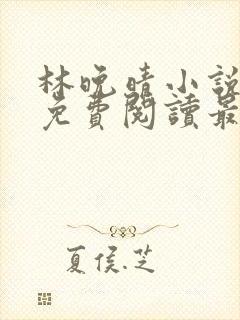 林晚晴小說
免費閱讀最
夏侯.芝